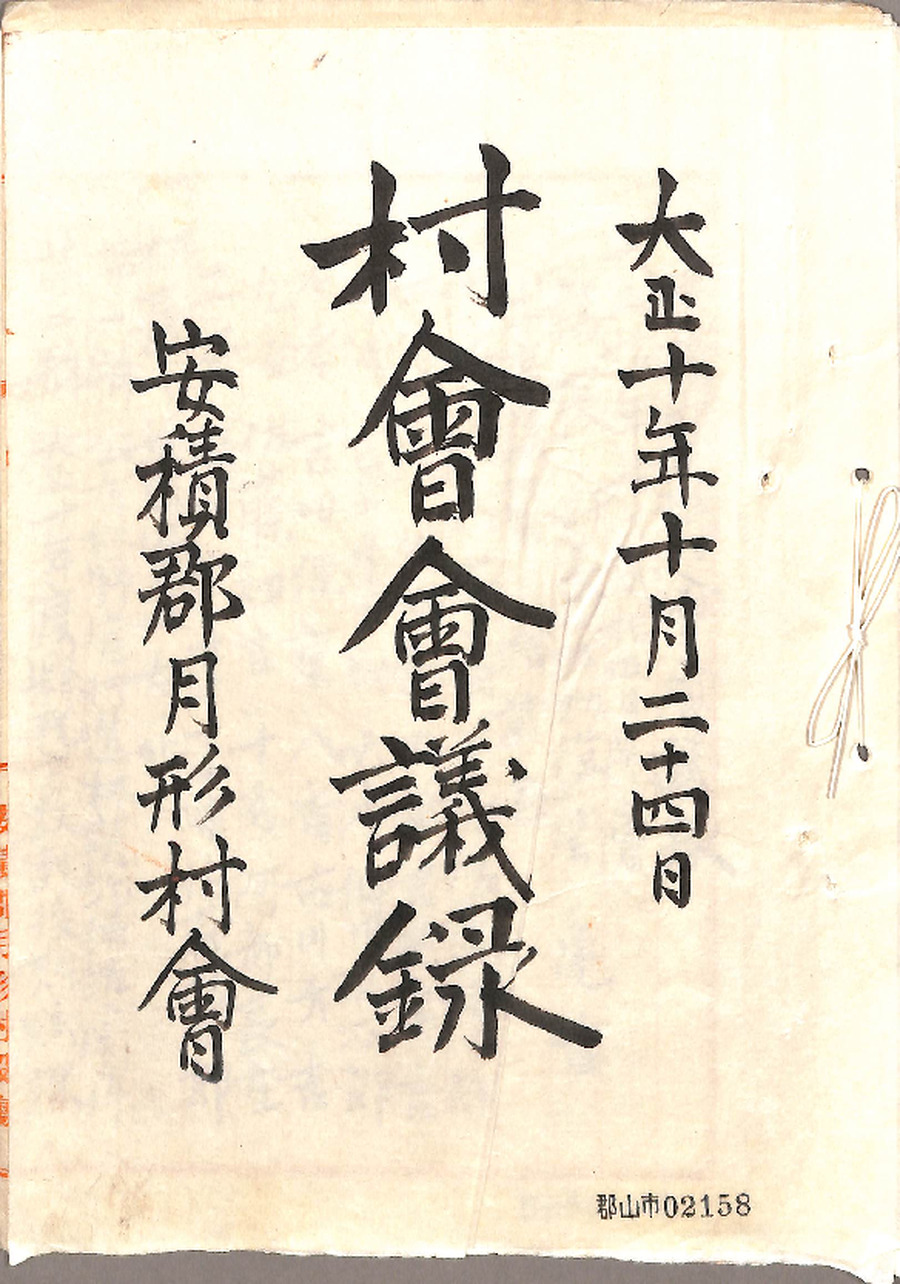 大正十年十月二十四日
村會會議録
安積郡月形村會
郡山市02158